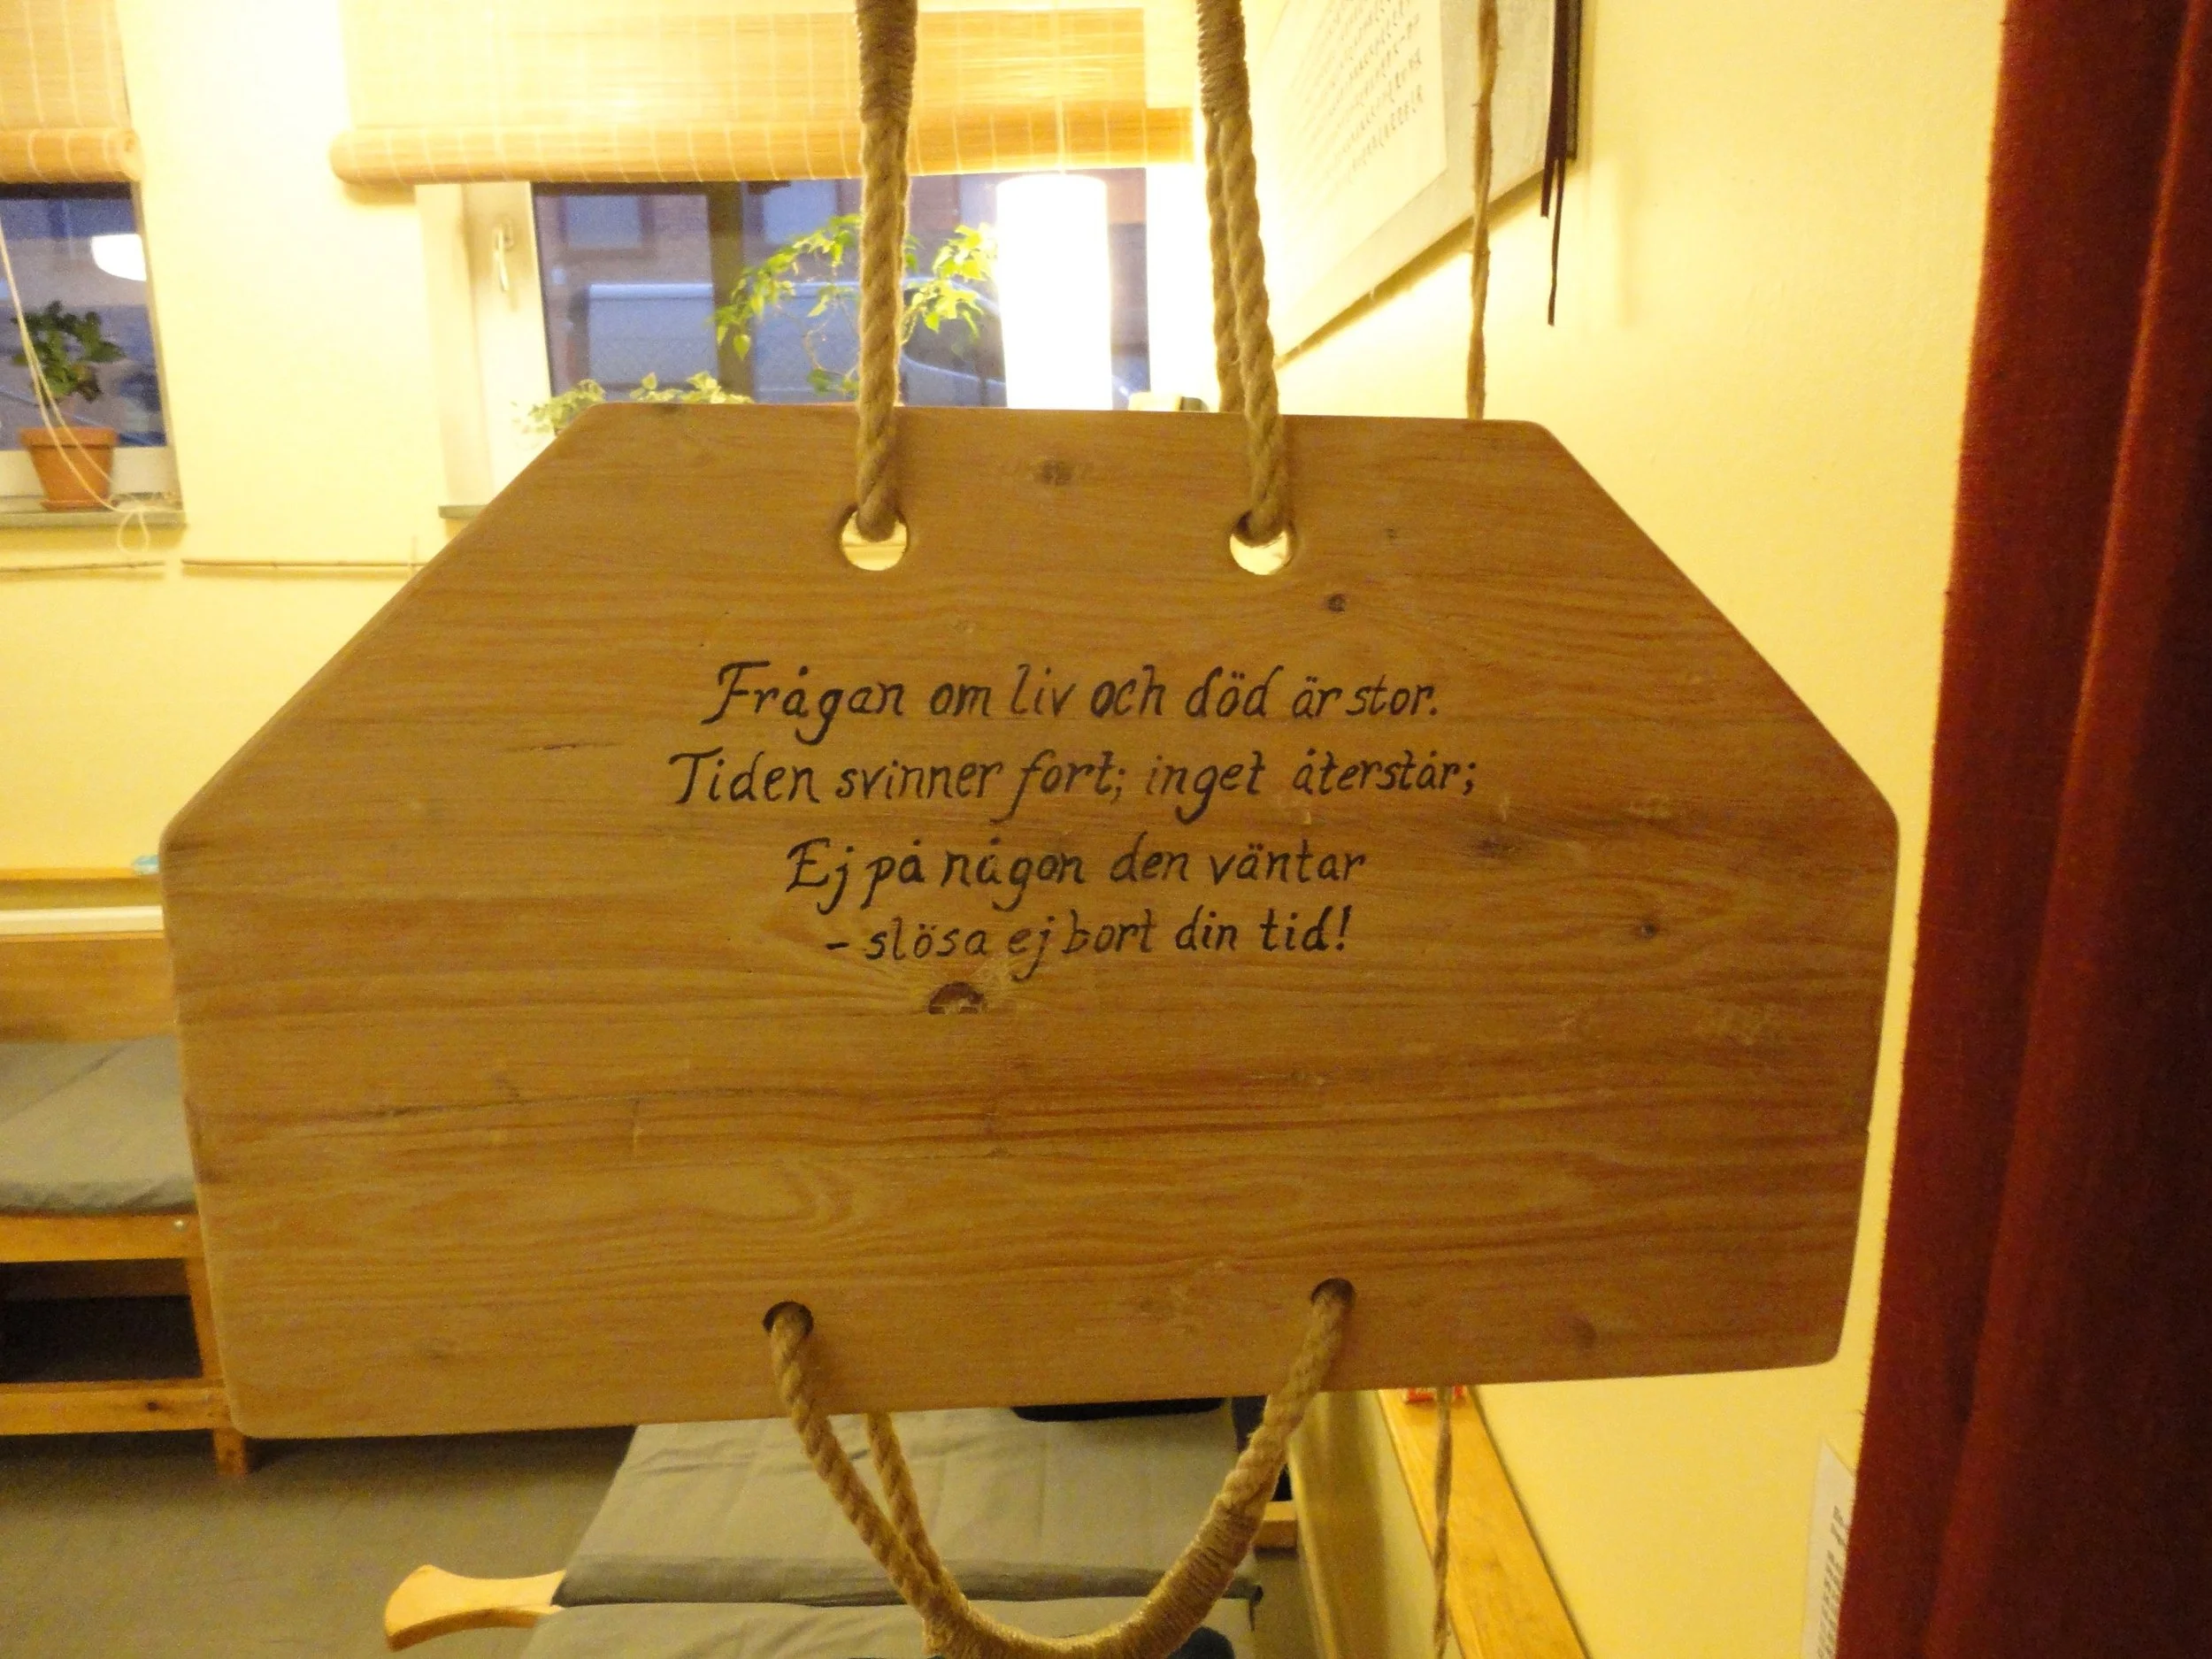 Frågan om liv och död är stor.
Tiden svinner fort; inget återstår;
Ej på någon den väntar
- slösa ej bort din tid!